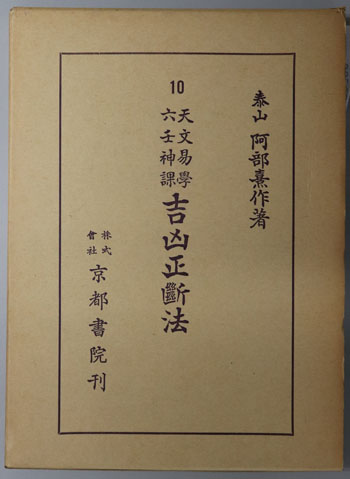 泰山 阿部熹作著
10
天文易學
六壬神課
吉凶正斷法
株式
會社
京都書院刊